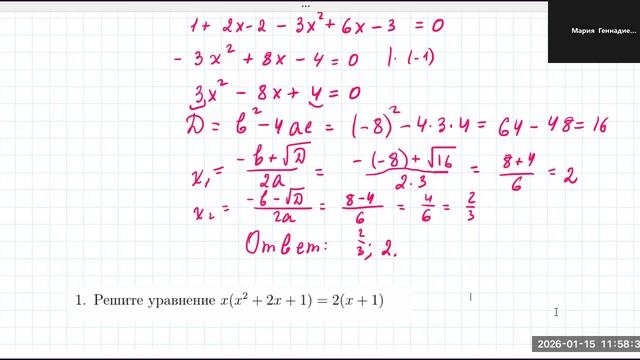 ...
Мария Геннадие...
1 + 2x - 2 - 3x² + 6x - 3 = 0
- 3x² + 8x - 4 = 0 |·(-1)
3x² - 8x + 4 = 0
D = b² - 4ac = (-8)² - 4·3·4 = 64 - 48 = 16
x₁ = (-b + √D)/(2a) = (-(-8) + √16)/(2·3) = (8+4)/6 = 2
x₂ = (-b - √D)/(2a) = (8-4)/6 = 4/6 = 2/3
Ответ: 2/3; 2.
1. Решите уравнение x(x² + 2x + 1) = 2(x + 1)
2026-01-15 11:58:3